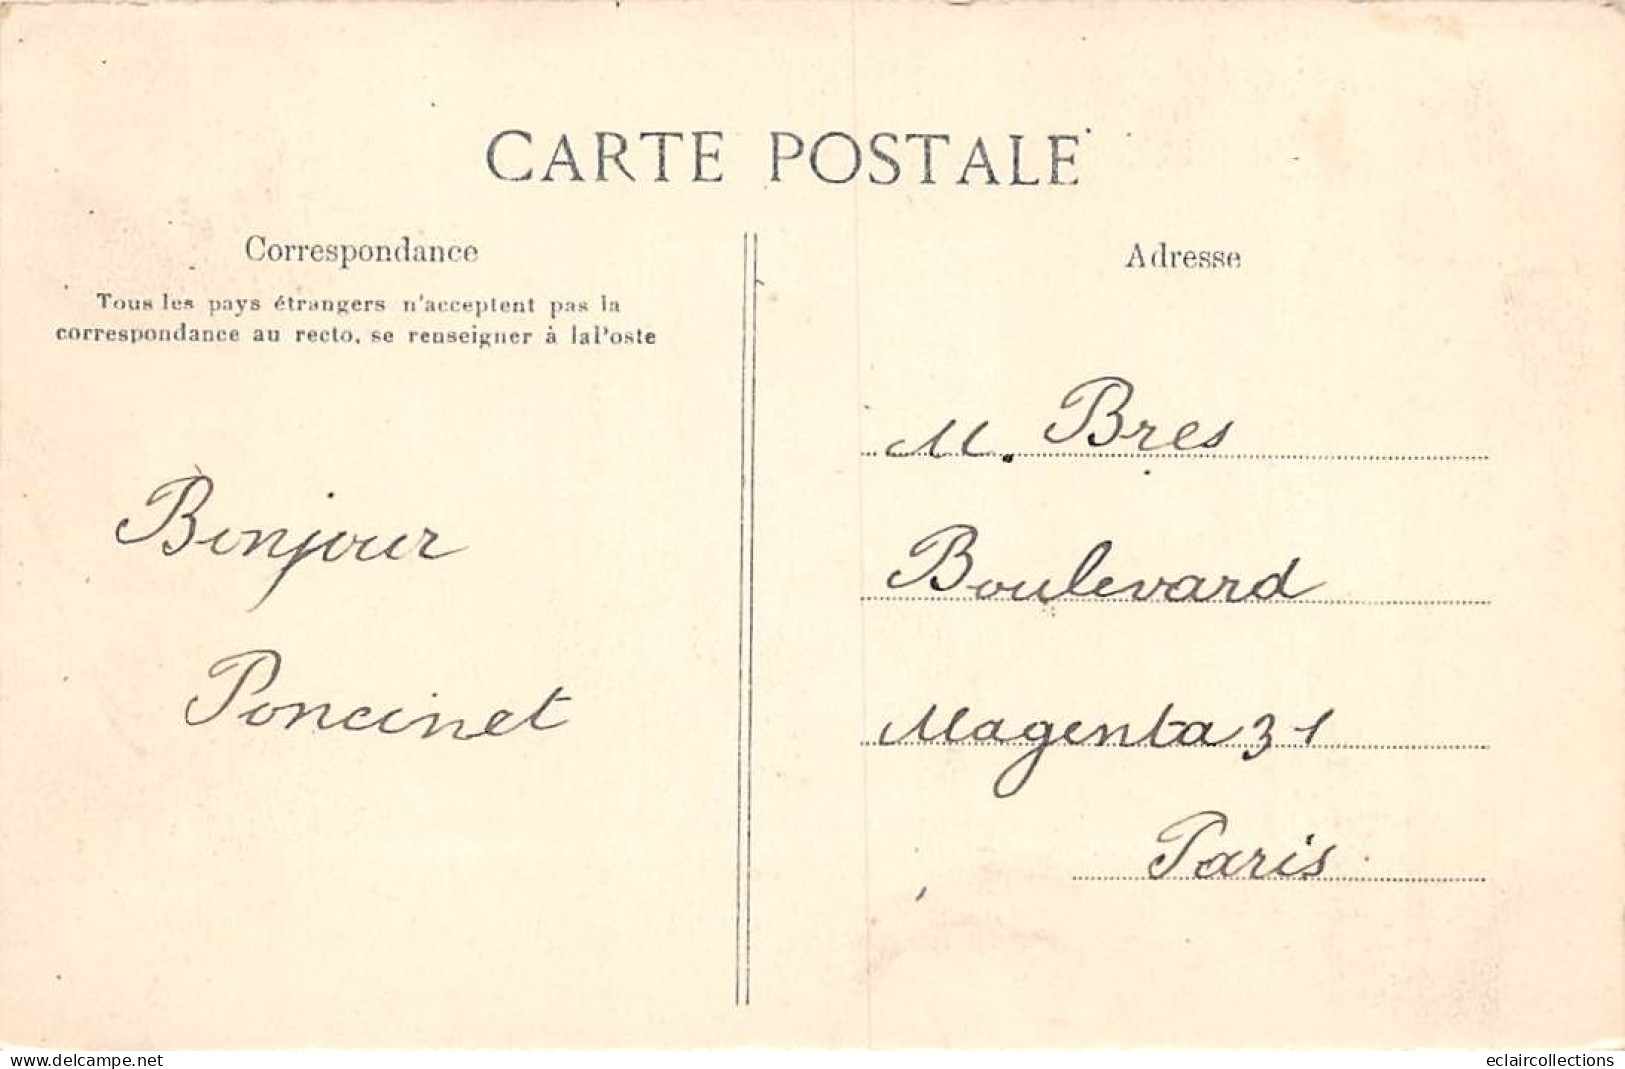 CARTE POSTALE
Correspondance
Tous les pays étrangers n'acceptent pas la
correspondance au recto, se renseigner à laPoste
Bonjour
Poncinet
Adresse
M. Bres
Boulevard
Magenta 31
Paris
www.delcampe.net
eclaircollections